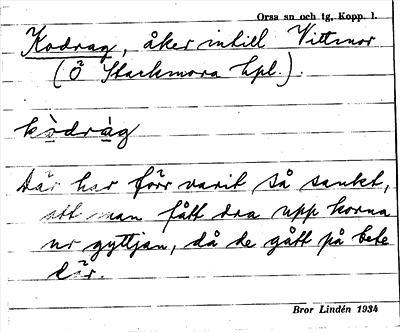 Orsa sn och tg, Kopp. l.
Kodrag, åker intill Vittmor
(Ö Stackmora hpl.).
kòdràg
Där har förr varit så sankt,
att man fått dra upp korna
ur gyttjan, då de gått på bete
där.
Bror Lindén 1934